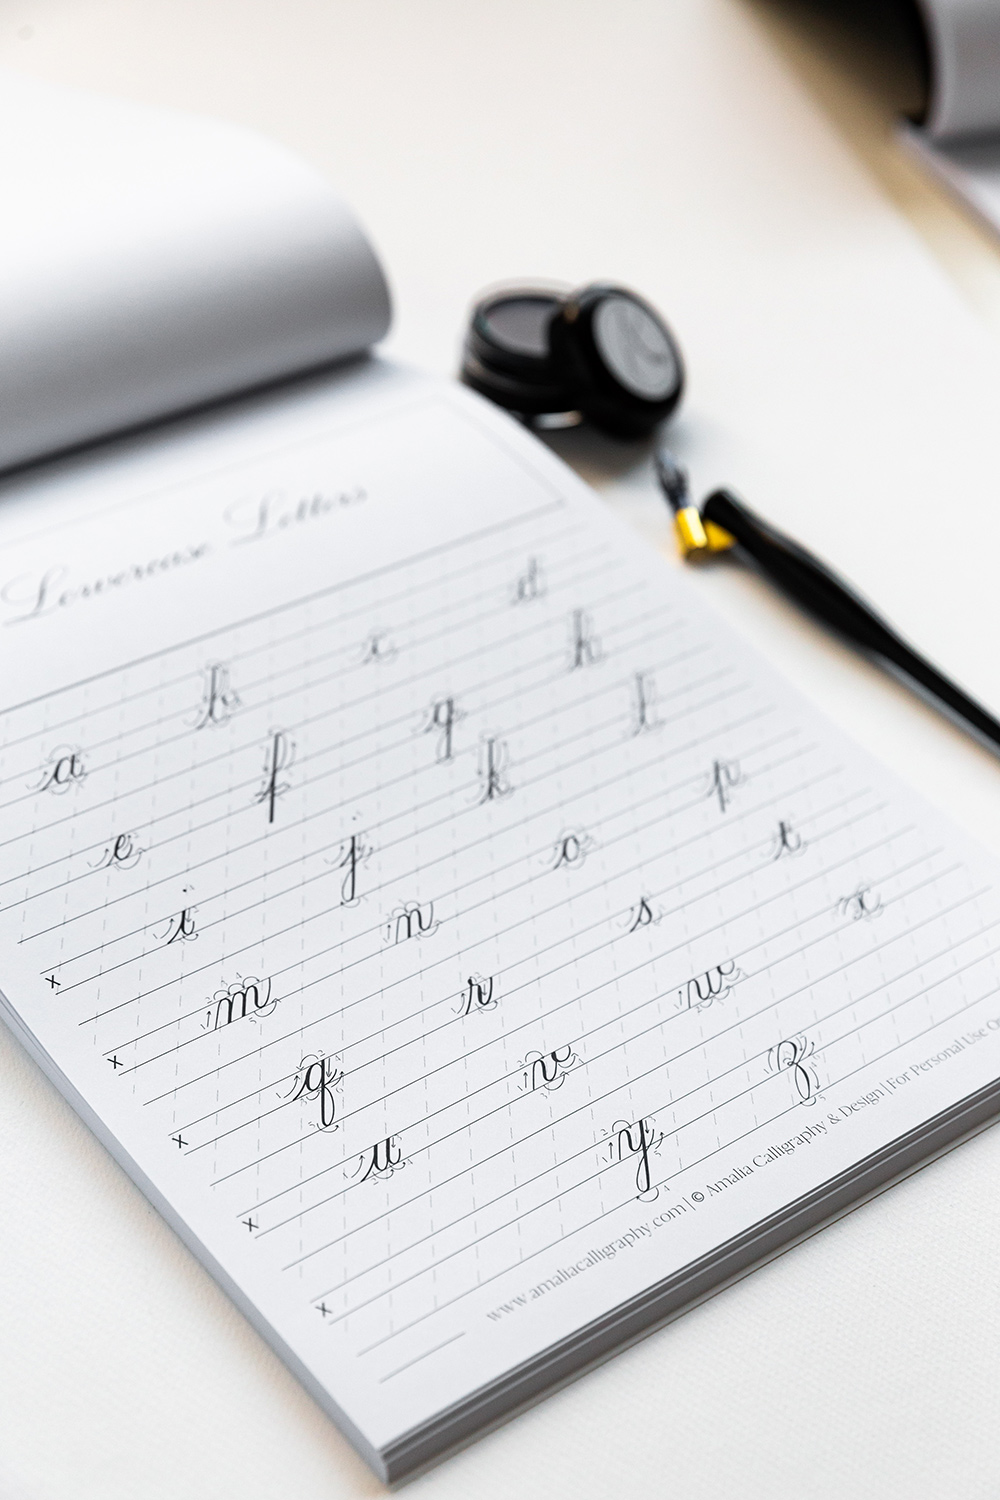 Lowercase Letters
a b c d
e f g h
x i j k l
x m n o p
x q r s t
x u v w x
x y z
www.amaliacalligraphy.com | © Amalia Calligraphy & Design | For Personal Use